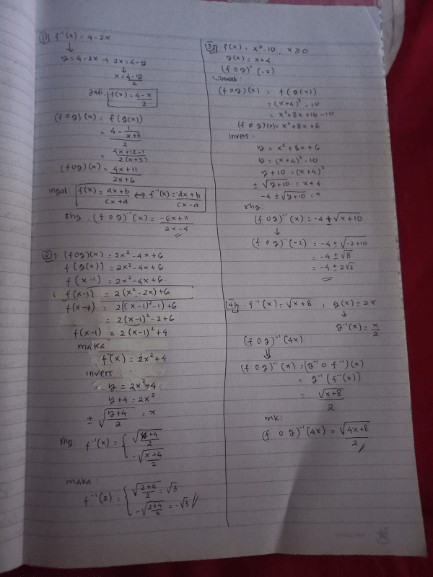 f⁻¹(x) = 4-2x
↓
y = 4-2x → 2x = 4-y
↓
x = 4-y/2
Jadi f(x) = 4-x/2
(fog)(x) = f(g(x))
= 4x+12-1/2(x+3)
(fog)(x) = 4x+11/2x+6
ingat f(x) = ax+b/cx+d ↔ f⁻¹(x) =
Shg. (fog)⁻¹(x) =
(fog)(x) = 2x²-4x+6
f(g(x)) = 2x²-4x+6
f(x-1) = 2x²-4x+6
f(x-1) = 2(x²-2x)+6
f(x-1) = 2((x-1)²-1)+6
= 2(x-1)²-2+6
f(x-1) = 2(x-1)²+4
maka
f(x) = 2x²+4
invers
y = 2x²+4
y+4 = 2x²
± √y+4/2 = x
shg. f⁻¹(x) = { √x+4/2
-√x+4/2
maka
f⁻¹(2) = { √2+4/2 = √3
-√2+4/2 = -√3
f(x) = x²-10, x≥0
g(x) = x+4
(fog)⁻¹(-2)
(fog)(x) = f(g(x))
= (x+4)²-10
= x²+8x+16-10
(fog)(x) = x²+8x+6
invers
y = x²+8x+6
y = (x+4)²-10
y+10 = (x+4)²
±√y+10 = x+4
-4±√y+10 = x
shg.
(fog)⁻¹(x) = -4±√x+10
↓
(fog)⁻¹(-2) = -4±√-2+10
= -4±√8
= -4±2√2
f⁻¹(x) = √x+8, g(x) = 2x
g⁻¹(x) = x/2
(fog)⁻¹(4x)
⇓
(fog)⁻¹(x) = (g⁻¹ o f⁻¹)(x)
= g⁻¹(f⁻¹(x))
= √x+8/2
mk:
(fog)⁻¹(4x) = √4x+8/2